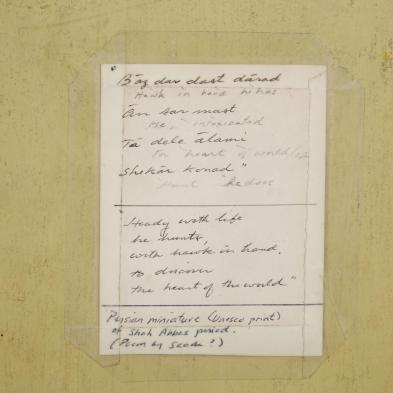 Bāz dar dast dārad
Hawk in hand he has
Ān sar mast
He, intoxicated
Tā dele ālami
For heart of world
Shekār konad"
Hunt he does
Heady with life
he hunts,
with hawk in hand,
to discover
the heart of the world"
Persian miniature (Unesco print)
of Shah Abbas period.
(Poem by Saadi?)